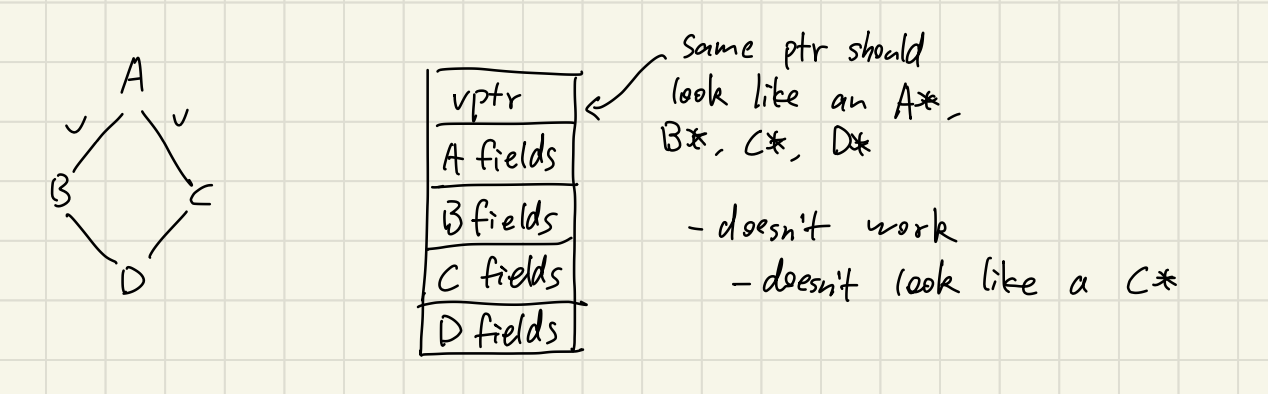 A
v v
B C
D
vptr
A fields
B fields
C fields
D fields
same ptr should
look like an A*,
B*, C*, D*
- doesn't work
- doesn't look like a C*